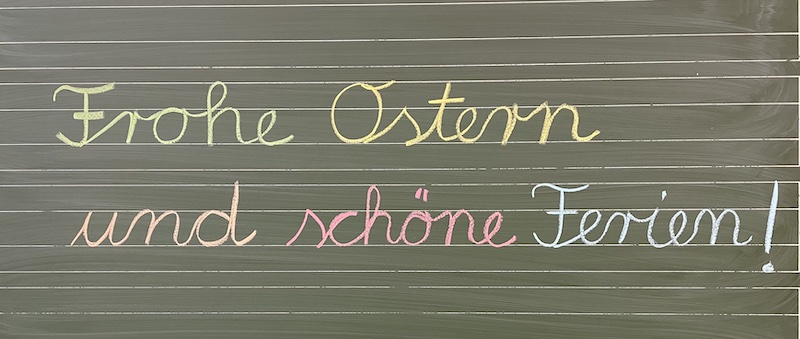 Frohe Ostern
und schöne Ferien!